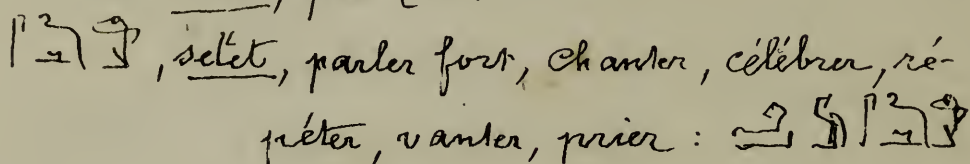 , setet, parler fort, chanter, célébrer, ré-
péter, vanter, prier :